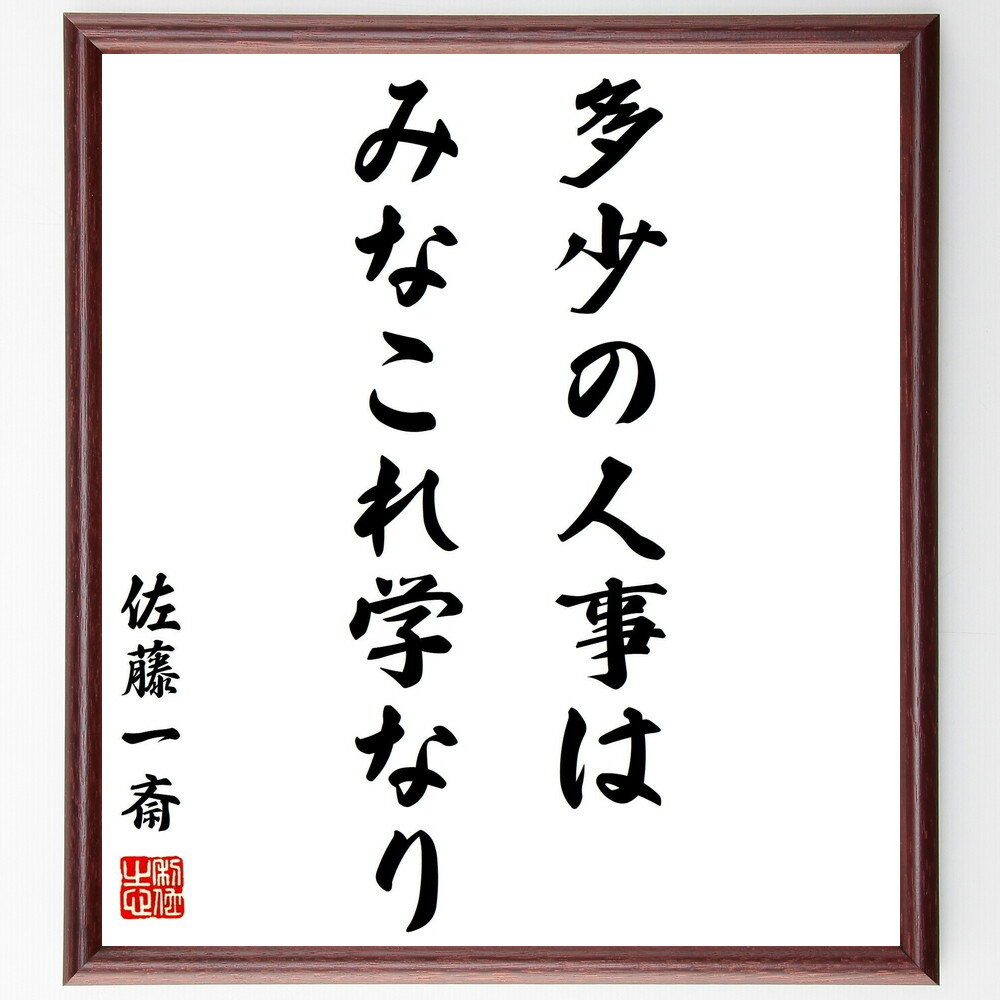 多少の人事は
みなこれ学なり
佐藤一斎